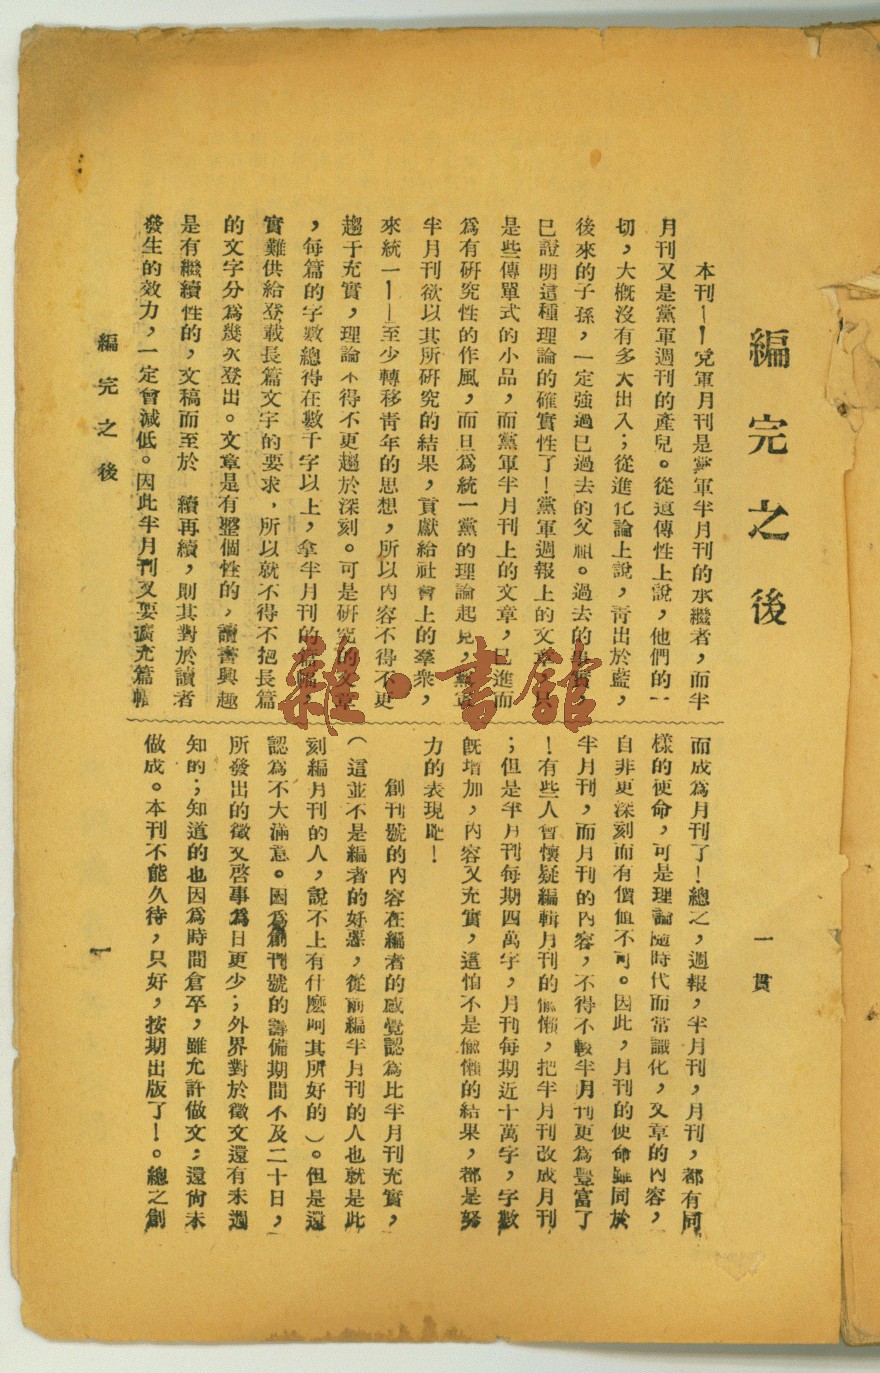 編完之後
一貫
本刊——党軍月刊是黨軍半月刊的承繼者，而半
月刊又是黨軍週刊的產兒。從遺傳性上說，他們的一
切，大概沒有多大出入；從進化論上說，靑出於藍，
後來的子孫，一定強過已過去的父祖。過去的事實，
已證明這種理論的確實性了！黨軍週報上的文章，只
是些傳單式的小品，而黨軍半月刊上的文章，已進而
爲有研究性的作風，而且爲統一黨的理論起見，黨軍
半月刊欲以其所研究的結果，貢獻給社會上的羣衆，
來統一——至少轉移靑年的思想，所以內容不得不更
趨于充實，理論不得不更趨於深刻。可是研究的文章
，每篇的字數總得在數千字以上，拿半月刊的篇幅，
實難供給登載長篇文字的要求，所以就不得不把長篇
的文字分爲幾次登出。文章是有整個性的，讀書興趣
是有繼續性的，文稿而至於 續再續，則其對於讀者
發生的效力，一定會減低。因此半月刊又要擴充篇幅
而成爲月刊了！總之，週報，半月刊，月刊，都有同
樣的使命，可是理論隨時代而常識化，文章的內容，
自非更深刻而有價値不可。因此，月刊的使命雖同於
半月刊，而月刊的內容，不得不較半月刊更爲豐富了
！有些人會懷疑編輯月刊的偸懶，把半月刊改成月刊
；但是半月刊每期四萬字，月刊每期近十萬字，字數
旣增加，內容又充實，這怕不是偸懶的結果，都是努
力的表現吧！
創刊號的內容在編者的感覺認爲比半月刊充實，
（這並不是編者的好惡，從前編半月刊的人也就是此
刻編月刊的人，說不上有什麽呵其所好的）。但是還
認爲不大滿意。因爲創刊號的籌備期間不及二十日，
所發出的徵文啓事爲日更少；外界對於徵文還有未週
知的；知道的也因爲時間倉卒，雖允許做文；還尙未
做成。本刊不能久待，只好，按期出版了！。總之創
編完之後
一
雜·書館